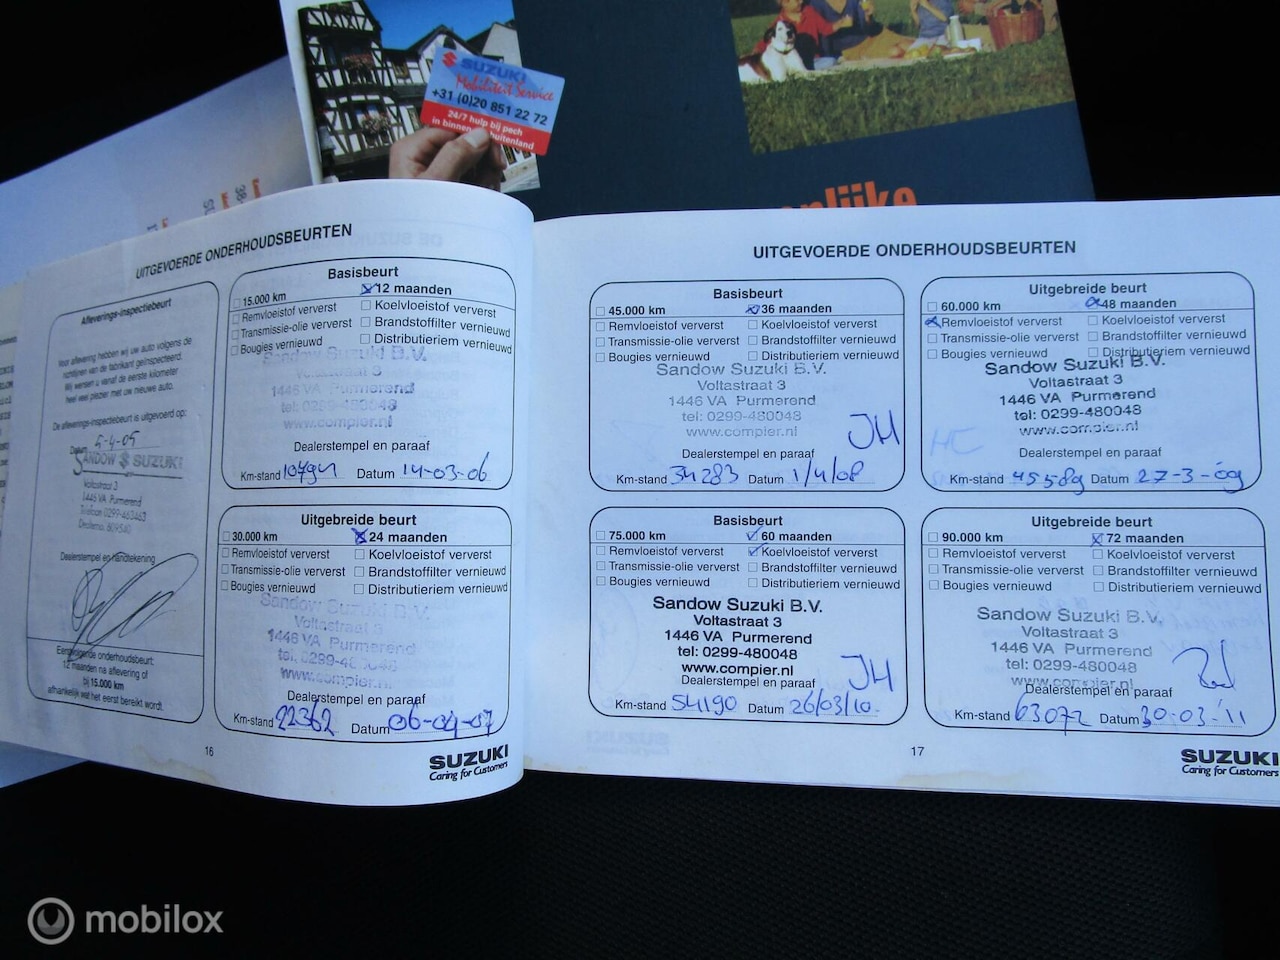 SUZUKI
Mobiliteit Service
+31 (0)20 851 22 72
24/7 hulp bij pech
in binnen buitenland
UITGEVOERDE ONDERHOUDSBEURTEN
Afleverings-inspectiebeurt
Voor aflevering hebben wij uw auto volgens de
richtlijnen van de fabrikant geïnspecteerd.
Wij wensen u vanaf de eerste kilometer
heel veel plezier met uw nieuwe auto.
De afleverings-inspectiebeurt is uitgevoerd op:
Datum 5-4-05
SANDOW SUZUKI
Voltastraat 3
1446 VA Purmerend
Telefoon 0299-463463
Dealerno. 809540
Dealerstempel en handtekening
Eerstvolgende onderhoudsbeurt:
12 maanden na aflevering of
bij 15.000 km
afhankelijk wat het eerst bereikt wordt.
Basisbeurt
15.000 km 12 maanden
Remvloeistof ververst Koelvloeistof ververst
Transmissie-olie ververst Brandstoffilter vernieuwd
Bougies vernieuwd Distributieriem vernieuwd
Sandow Suzuki B.V.
Voltastraat 3
1446 VA Purmerend
tel: 0299-480048
Dealerstempel en paraaf
Km-stand Datum 14-03-06
Uitgebreide beurt
30.000 km 24 maanden
Remvloeistof ververst Koelvloeistof ververst
Transmissie-olie ververst Brandstoffilter vernieuwd
Bougies vernieuwd Distributieriem vernieuwd
Sandow Suzuki B.V.
Voltastraat 3
1446 VA Purmerend
tel: 0299-480048
www.compier.nl
Dealerstempel en paraaf
Km-stand 22362 Datum 06-04-07
16
SUZUKI
Caring for Customers
UITGEVOERDE ONDERHOUDSBEURTEN
Basisbeurt
45.000 km 36 maanden
Remvloeistof ververst Koelvloeistof ververst
Transmissie-olie ververst Brandstoffilter vernieuwd
Bougies vernieuwd Distributieriem vernieuwd
Sandow Suzuki B.V.
Voltastraat 3
1446 VA Purmerend
tel: 0299-480048
www.compier.nl
JH
Dealerstempel en paraaf
Km-stand 34283 Datum 1/4/08
Uitgebreide beurt
60.000 km 48 maanden
Remvloeistof ververst Koelvloeistof ververst
Transmissie-olie ververst Brandstoffilter vernieuwd
Bougies vernieuwd Distributieriem vernieuwd
Sandow Suzuki B.V.
Voltastraat 3
1446 VA Purmerend
tel: 0299-480048
www.compier.nl
Dealerstempel en paraaf
Km-stand 45589 Datum 27-3-09
Basisbeurt
75.000 km 60 maanden
Remvloeistof ververst Koelvloeistof ververst
Transmissie-olie ververst Brandstoffilter vernieuwd
Bougies vernieuwd Distributieriem vernieuwd
Sandow Suzuki B.V.
Voltastraat 3
1446 VA Purmerend
tel: 0299-480048
www.compier.nl
JH
Dealerstempel en paraaf
Km-stand 54190 Datum 26/03/10.
Uitgebreide beurt
90.000 km 72 maanden
Remvloeistof ververst Koelvloeistof ververst
Transmissie-olie ververst Brandstoffilter vernieuwd
Bougies vernieuwd Distributieriem vernieuwd
Sandow Suzuki B.V.
Voltastraat 3
1446 VA Purmerend
tel: 0299-480048
www.compier.nl
Dealerstempel en paraaf
Km-stand 63072 Datum 30-03-'11
17
SUZUKI
Caring for Customers
mobilox